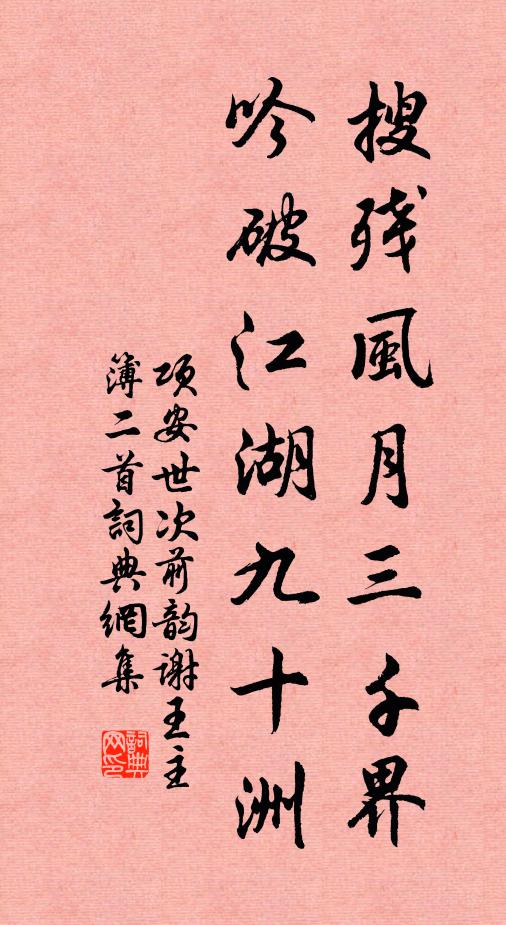 搜残風月三千界
吟破江湖九十洲
项安世次前韵谢王主
簿二首詞典網集
詞典
网印